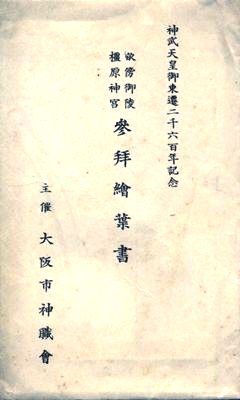 神武天皇御東遷二千六百年記念
畝傍御陵
橿原神宮
參拜繪葉書
主催 大阪市神職會